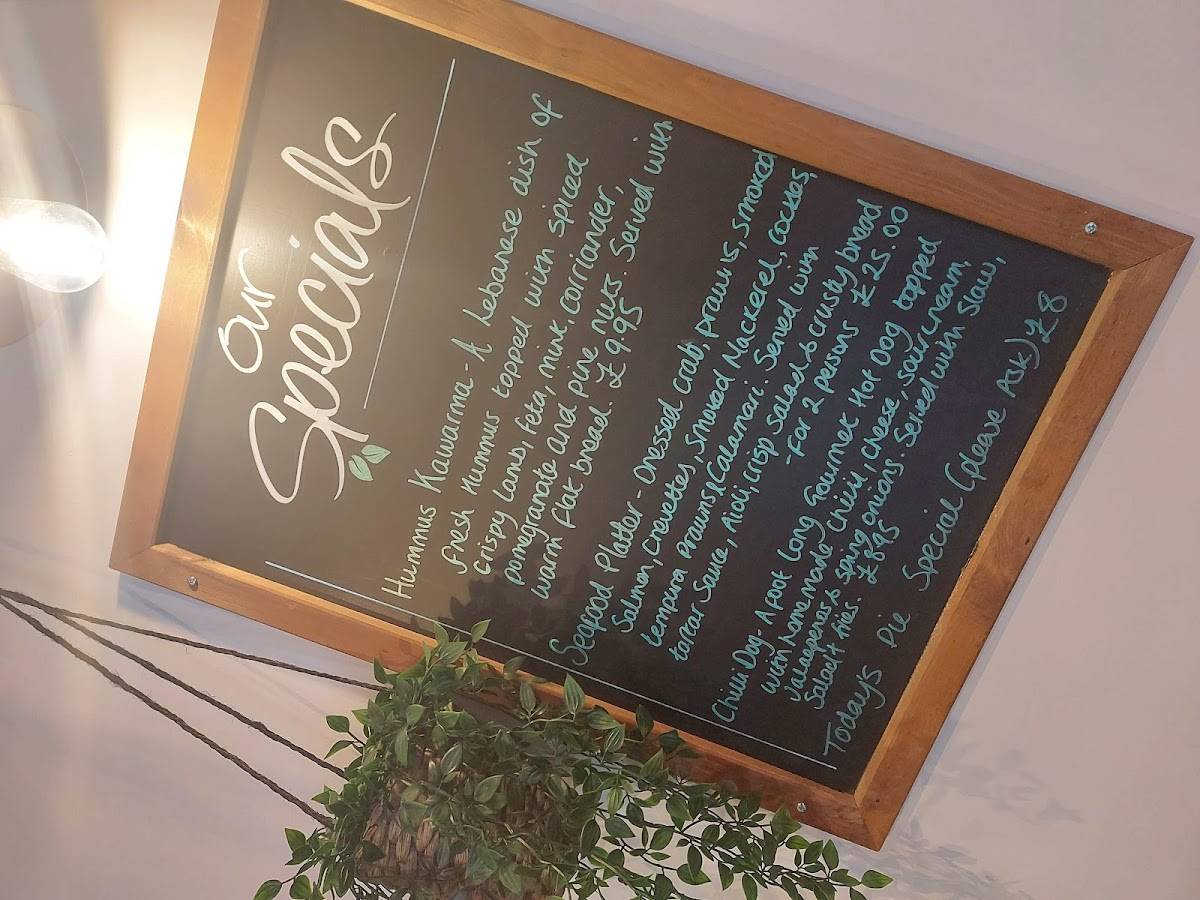 Our
Specials
Hummus Kawarma - A Lebanese dish of
fresh hummus topped with spiced
crispy lamb, feta, mint, corriander,
pomegranate and pine nuts. Served with
warm flat bread. £9.95
Seafood Platter - Dressed crab, prawns, smoked
Salmon, Crevettes, Smoked Mackerel, Cockles,
tempura prawns & Calamari. Served with
tartar Sauce, Aioli, crisp Salad & crusty bread
- For 2 persons £25.00
Chilli Dog - A foot Long Gourmet Hot Dog topped
with homemade Chilli, cheese, sour cream,
Jalapenes & spring onions. Served with Slaw,
Salad & fries. £8.95
Todays Pie Special (please Ask) £8